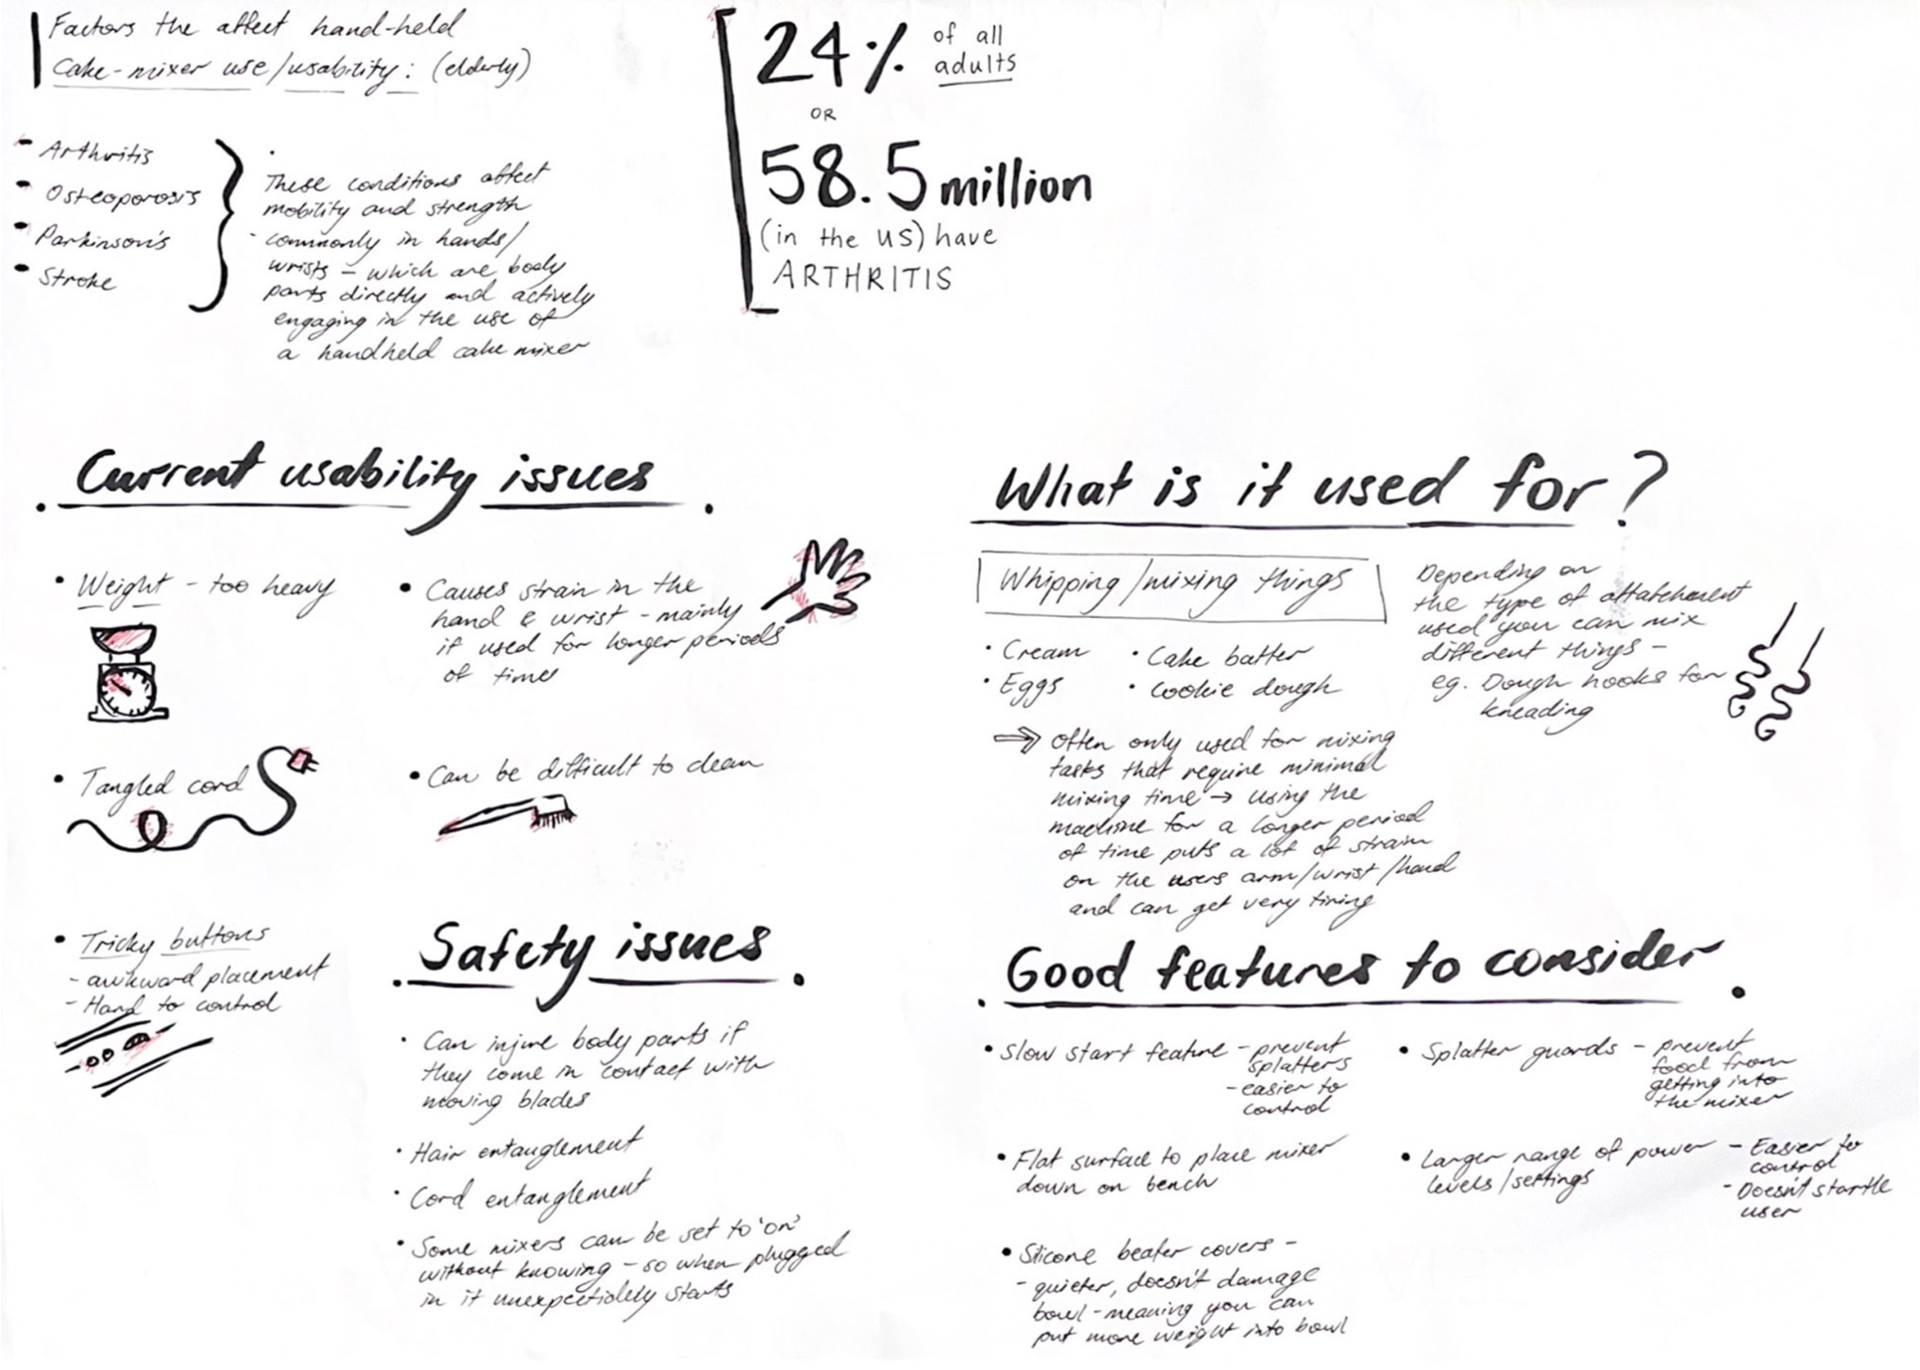 Factors the affect hand-held
cake-mixer use/usability: (elderly)
- Arthritis
- Osteoporosis
- Parkinson's
- Stroke
These conditions affect
mobility and strength
- commonly in hands/
wrists - which are body
parts directly and actively
engaging in the use of
a handheld cake mixer
24% of all
adults
OR
58.5 million
(in the US) have
ARTHRITIS
Current usability issues
• Weight - too heavy
• Causes strain in the
hand & wrist - mainly
if used for longer periods
of time
• Tangled cord
• Can be difficult to clean
• Tricky buttons
- awkward placement
- Hard to control
Safety issues
• Can injure body parts if
they come in contact with
moving blades
• Hair entanglement
• Cord entanglement
• Some mixers can be set to 'on'
without knowing - so when plugged
in it unexpectidely starts
What is it used for?
Whipping/mixing things
• Cream
• Eggs
• Cake batter
• Cookie dough
Depending on
the type of attatchement
used you can mix
different things -
eg. Dough hooks for
kneading
⇒ Often only used for mixing
tasks that require minimal
mixing time → using the
machine for a longer period
of time puts a lot of strain
on the users arm/wrist/hand
and can get very tiring
Good features to consider
• Slow start feature - prevent
splatters
- easier to
control
• Splatter guards - prevent
food from
getting into
the mixer
• Flat surface to place mixer
down on bench
• Larger range of power
levels/settings
- Easier to
control
- Doesn't startle
user
• Silicone beater covers -
- quieter, doesn't damage
bowl - meaning you can
put more weight into bowl